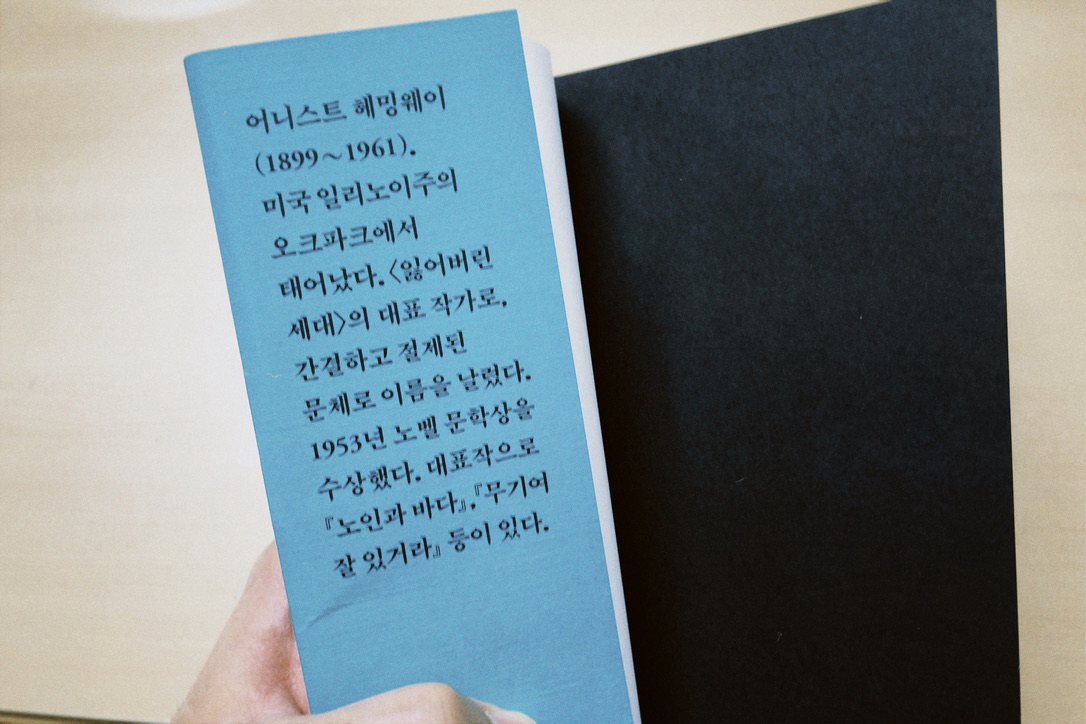 어니스트 헤밍웨이
(1899~1961).
미국 일리노이주의
오크파크에서
태어났다.〈잃어버린
세대〉의 대표 작가로,
간결하고 절제된
문체로 이름을 날렸다.
1953년 노벨 문학상을
수상했다. 대표작으로
『노인과 바다』, 『무기여
잘 있거라』 등이 있다.